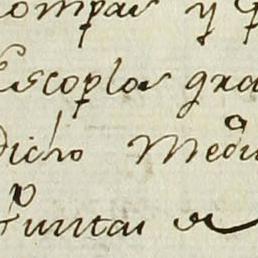 compas y p
Escoplos gra
dicho Med
Juntas de